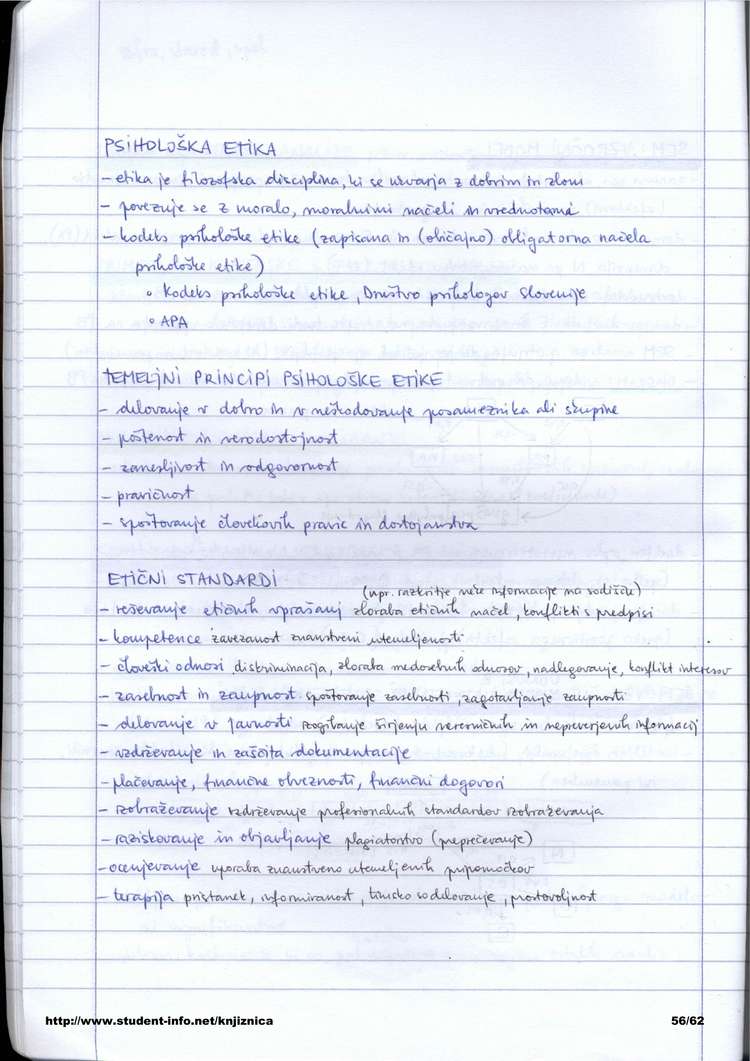 PSIHOLOŠKA ETIKA
- etika je filozofska disciplina, ki se ukvarja z dobrim in zlom
- povezuje se z moralo, moralnimi načeli in vrednotami
- kodeks psihološke etike (zapisana in (običajno) obligatorna načela
psihološke etike)
• Kodeks psihološke etike, Društvo psihologov Slovenije
• APA
TEMELJNI PRINCIPI PSIHOLOŠKE ETIKE
- delovanje v dobro in v neškodovanje posameznika ali skupine
- poštenost in verodostojnost
- zanesljivost in odgovornost
- pravičnost
- spoštovanje človekovih pravic in dostojanstva
ETIČNI STANDARDI
(npr. razkritje neke informacije na sodišče)
- reševanje etičnih vprašanj zloraba etičnih načel, konflikti s predpisi
- kompetence zavezanost znanstveni utemeljenosti
- človeški odnosi diskriminacija, zloraba medosebnih odnosov, nadlegovanje, konflikt interesov
- zasebnost in zaupnost spoštovanje zasebnosti, zagotavljanje zaupnosti
- delovanje v javnosti izogibanje širjenju neresničnih in nepreverjenih informacij
- vzdrževanje in zaščita dokumentacije
- plačevanje, finančne obveznosti, finančni dogovori
- izobraževanje vzdrževanje profesionalnih standardov izobraževanja
- raziskovanje in objavljanje plagiatorstvo (preprečevanje)
- ocenjevanje uporaba znanstveno utemeljenih pripomočkov
- terapija pristanek, informiranost, timsko sodelovanje, prostovoljnost
http://www.student-info.net/knjiznica 56/62